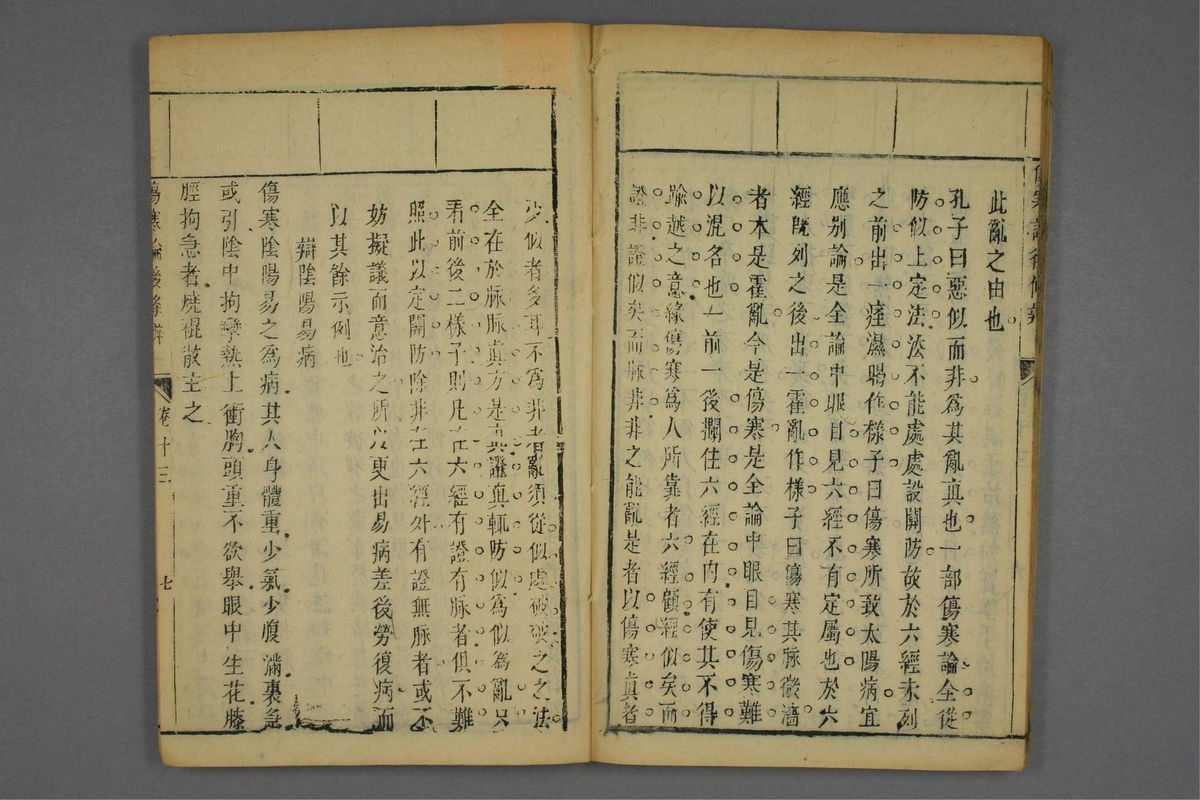 此亂之由也
孔子曰惡似而非為其亂真也一部傷寒論全從
防似上定法法不能處處設關防故於六經未列
之前出一痙濕暍作樣子曰傷寒所致太陽病宜
應别論是全論中眼目見六經不有定屬也於六
經既列之後出一霍亂作樣子曰傷寒其脉微濇
者本是霍亂今是傷寒是全論中眼目見傷寒難
以混名也一前一後攔住六經在内有使其不得
踰越之意緣傷寒為人所靠者六經顧經似矣而
證非證似矣而脉非非之能亂是者以傷寒真者
少似者多耳不為非者亂須從似處破與之之法
全在於脉脉真方是真證真輒防似為似為亂只
看前後二樣子則凡在六經有證有脉者俱不難
照此以定關防除非在六經外有證無脉者或不
妨擬議而意治之所以更出易病差後勞復病而
以其餘示例也
辯陰陽易病
傷寒陰陽易之為病其人身體重少氣少腹滿裏急
或引陰中拘攣熱上衝胸頭重不欲舉眼中生花膝
脛拘急者燒裩散主之
傷寒論後條辨
卷十三
七